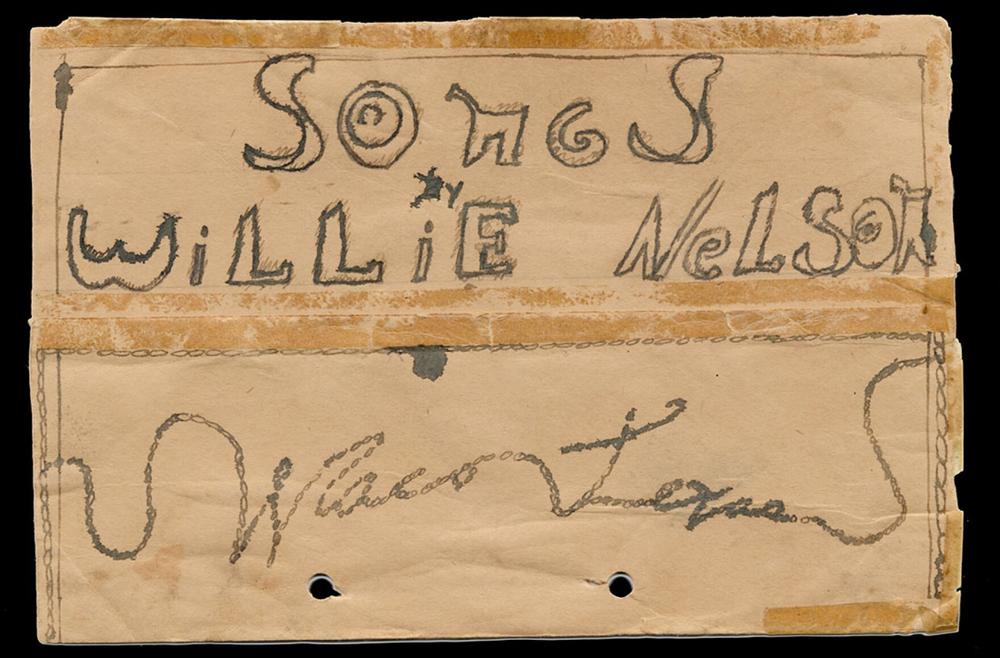 SOnGS
BY
WiLLiE NeLSOn
Waco Texas